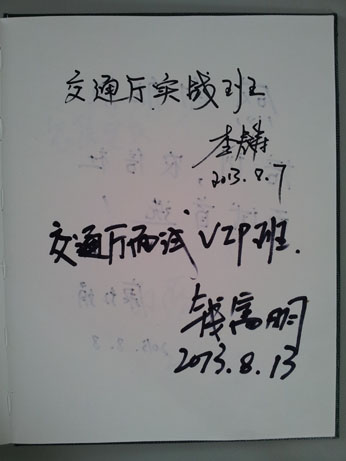 交通厅实战班
2013.8.7
交通厅面试VIP班.
钱富明
2013.8.13